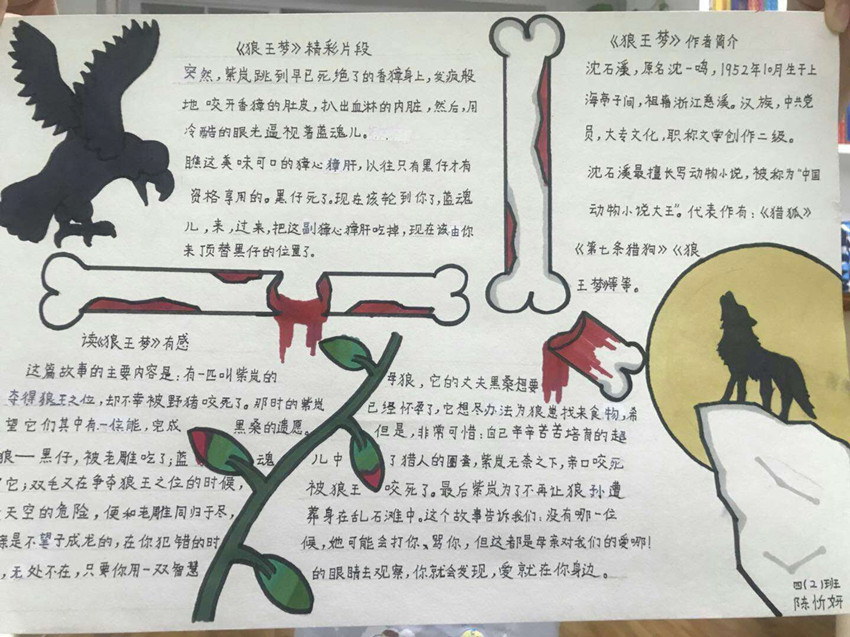 《狼王梦》精彩片段
突然,紫岚跳到早已死绝了的香獐身上,发疯般
地咬开香獐的肚皮,扒出血淋的内脏,然后,用
冷酷的眼光逼视着蓝魂儿。
瞧这美味可口的獐心獐肝,以往只有黑仔才有
资格享用的。黑仔死了。现在该轮到你了,蓝魂
儿,来,过来,把这副獐心獐肝吃掉,现在该由你
来顶替黑仔的位置了。
《狼王梦》作者简介
沈石溪,原名沈一鸣,1952年10月生于上
海亭子间,祖籍浙江慈溪。汉族,中共党
员,大专文化,职称文学创作二级。
沈石溪最擅长写动物小说,被称为“中国
动物小说大王”。代表作有:《猎狐》
《第七条猎狗》《狼
王梦》等等。
读《狼王梦》有感
这篇故事的主要内容是:有一匹叫紫岚的 母狼,它的丈夫黑桑想要
夺得狼王之位,却不幸被野猪咬死了。那时的紫岚 已经怀孕了,它想尽办法为狼崽找来食物,希
望它们其中有一体能,完成 黑桑的遗愿。 但是,非常可惜:自己辛辛苦苦培育的超
狼——黑仔,被老雕吃了;蓝 魂 儿中 了猎人的圈套,紫岚无奈之下,亲口咬死
了它;双毛又在争夺狼王之位的时候, 被狼王 咬死了。最后紫岚为了不再让狼孙遭
天空的危险,便和老雕同归于尽, 葬身在乱石滩中。这个故事告诉我们:没有哪一位
亲是不望子成龙的,在你犯错的时 候,她可能会打你、骂你,但这都是母亲对我们的爱哪!
,无处不在,只要你用一双智慧 的眼睛去观察,你就会发现,爱就在你身边。
四(2)班
陈忻妍